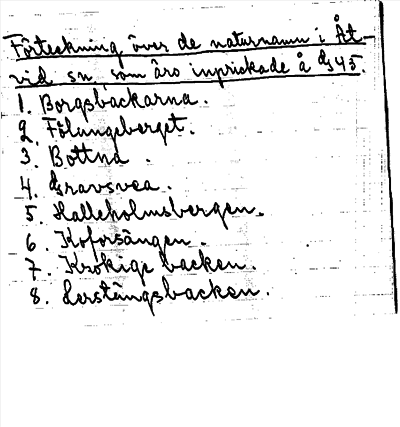 Förteckning över de naturnamn i Åt-
vid sn, som äro inprickade å G 45.
1. Borgsbackarna.
2. Fölungsberget.
3. Bottna.
4. Gravsvea.
5. Halleholmsbergen.
6. Koforsängen.
7. Krokige backen.
8. Lerstängsbacken.